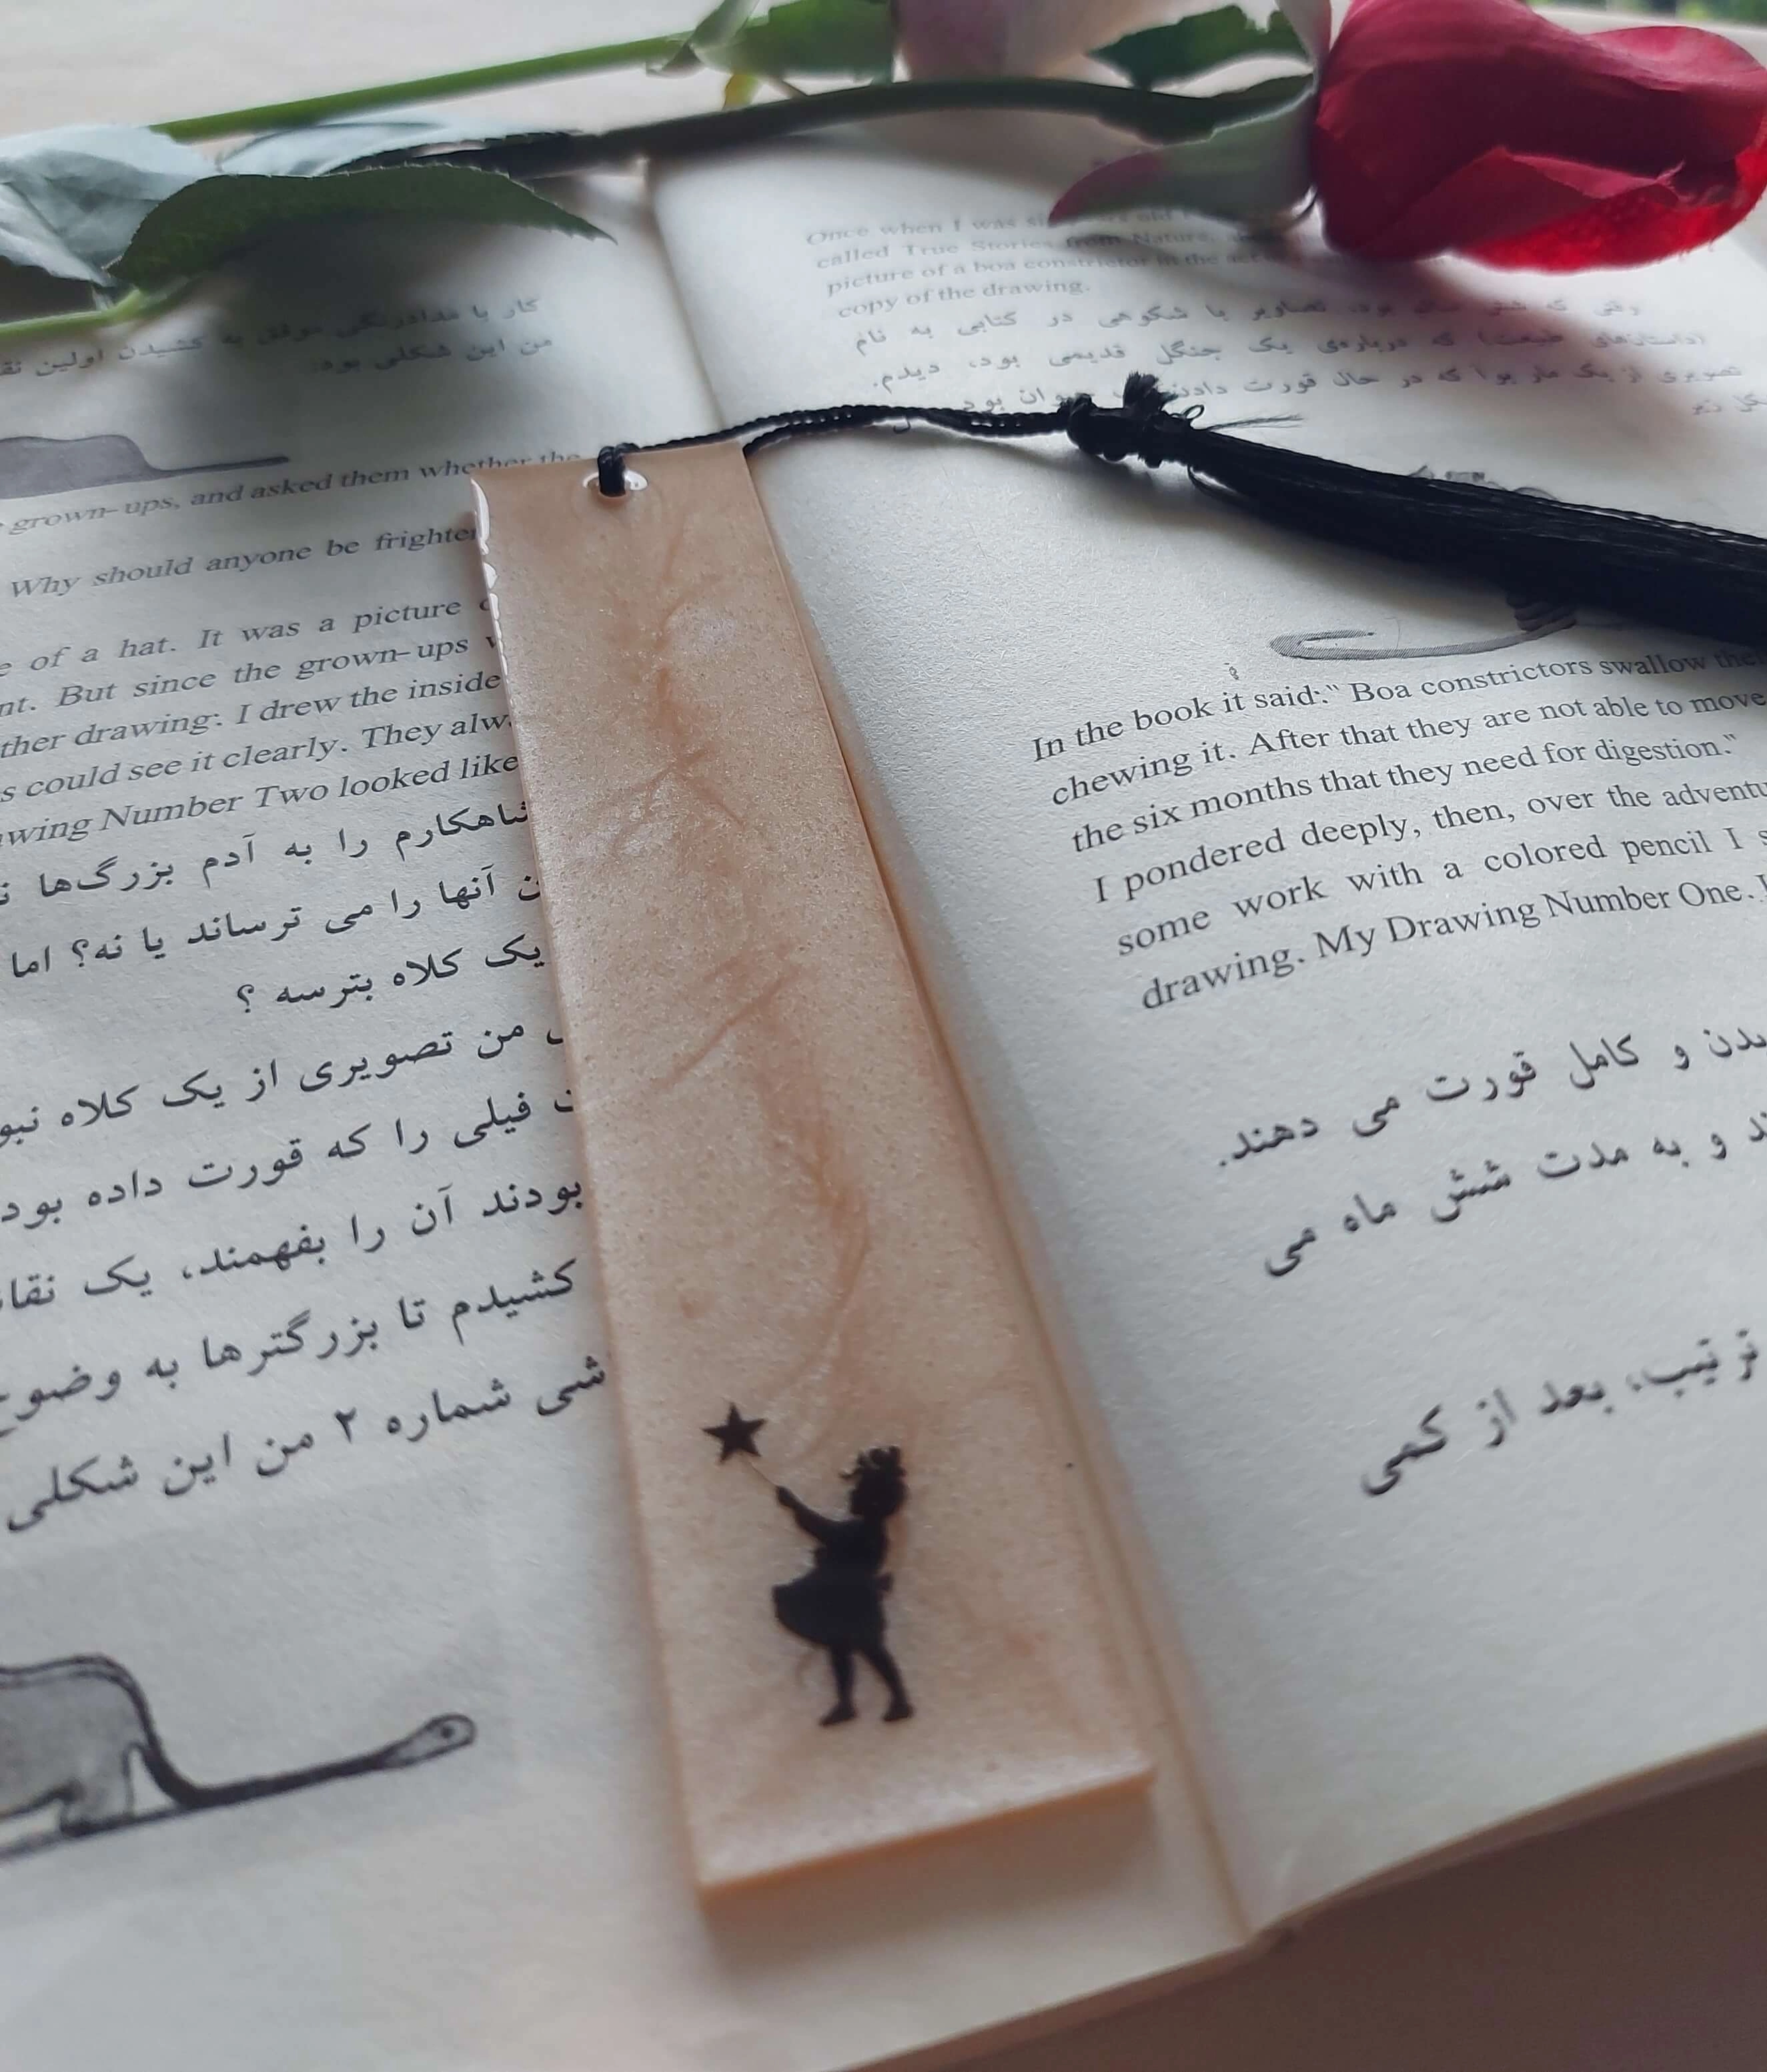 کار با مدادرنگی موفق به کشیدن اولین
من این شکلی بود.
grown-ups, and asked them whether the
Why should anyone be
of a hat. It was a picture
But since the grown-ups
drawing: I drew the inside
could see it clearly. They
Number Two looked like
شاهکارم را به آدم بزرگ‌ها
آنها را می ترساند یا نه؟ اما
یک کلاه بترسه ؟
من تصویری از یک کلاه
فیلی را که قورت داده
بودند آن را بفهمند، یک
کشیدم تا بزرگترها به
شماره ۲ من این شکلی
Once when I was
called True Stories from Nature,
picture of a boa constrictor in the
copy of the drawing.
وقتی که شش سال بود، تصاویر با شکوهی در کتابی به نام
(داستان‌های طبیعت) که درباره‌ی یک جنگل قدیمی بود، دیدم.
تصویری از یک مار بوآ که در حال قورت دادن بود
In the book it said:" Boa constrictors swallow
chewing it. After that they are not able to move
the six months that they need for digestion."
I pondered deeply, then, over the
some work with a colored pencil I
drawing. My Drawing Number One.
و کامل قورت می دهند.
و به مدت شش ماه می
بعد از کمی